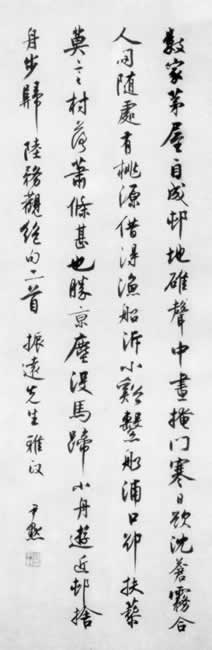 數家茅屋自成邨地碓聲中晝掩門寒日欲沈蒼霧合
人間隨處有桃源借得漁船泝小谿繫船浦口卻扶藜
莫言村落蕭條甚也勝京塵沒馬蹄小舟遊近邨捨
舟步歸 陸務觀絕句二首 振遠先生雅政 尹默